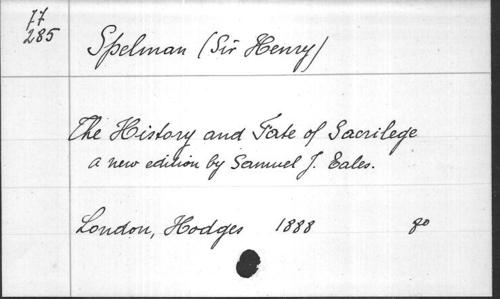 77
285
Spelman (Sir Henry)
The History and Fate of Sacrilege
a new edition by Samuel J. Eales.
London, Hodges 1888 8o